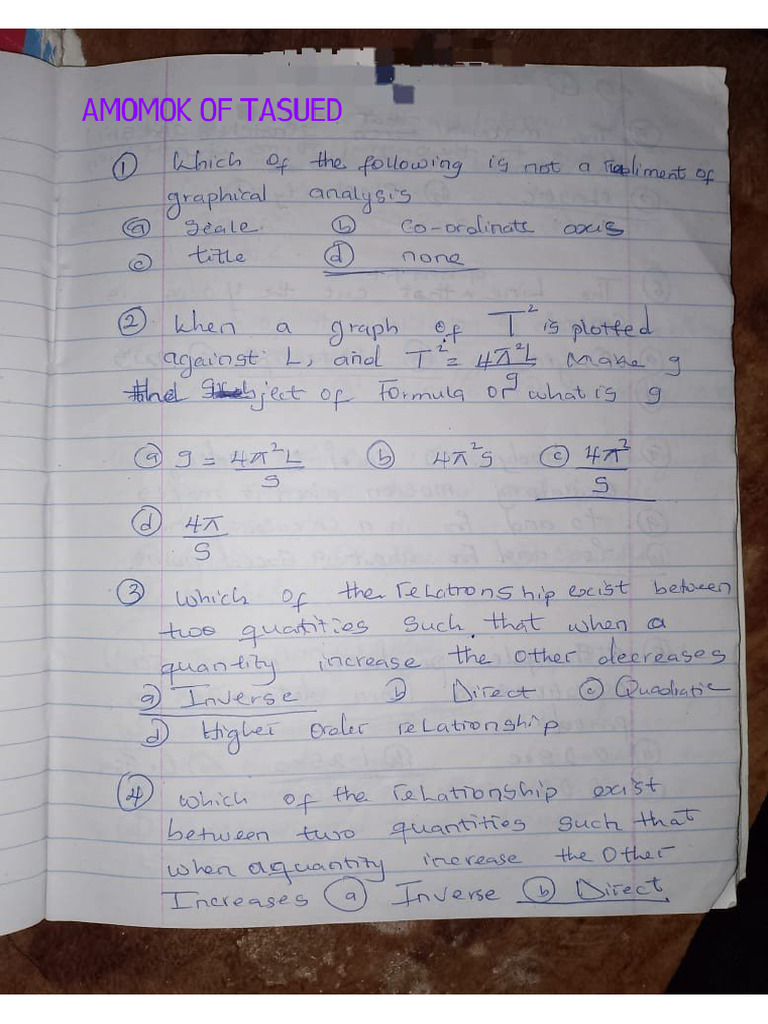 AMOMOK OF TASUED
① Which of the following is not a of
graphical analysis
ⓐ scale. ⓑ co-ordinate axis
ⓒ title ⓓ none
② When a graph of T² is plotted
against L, and T² = 4π²L/g make g
the subject of formula or what is g
ⓐ g = 4π²L/S ⓑ 4π²S ⓒ 4π²/S
ⓓ 4π/S
③ which of the relationship exist between
two quantities such that when a
quantity increase the other decreases
ⓐ Inverse ⓑ Direct ⓒ Quadratic
ⓓ Higher order relationship
④ which of the relationship exist
between two quantities such that
when a quantity increase the other
Increases ⓐ Inverse ⓑ Direct